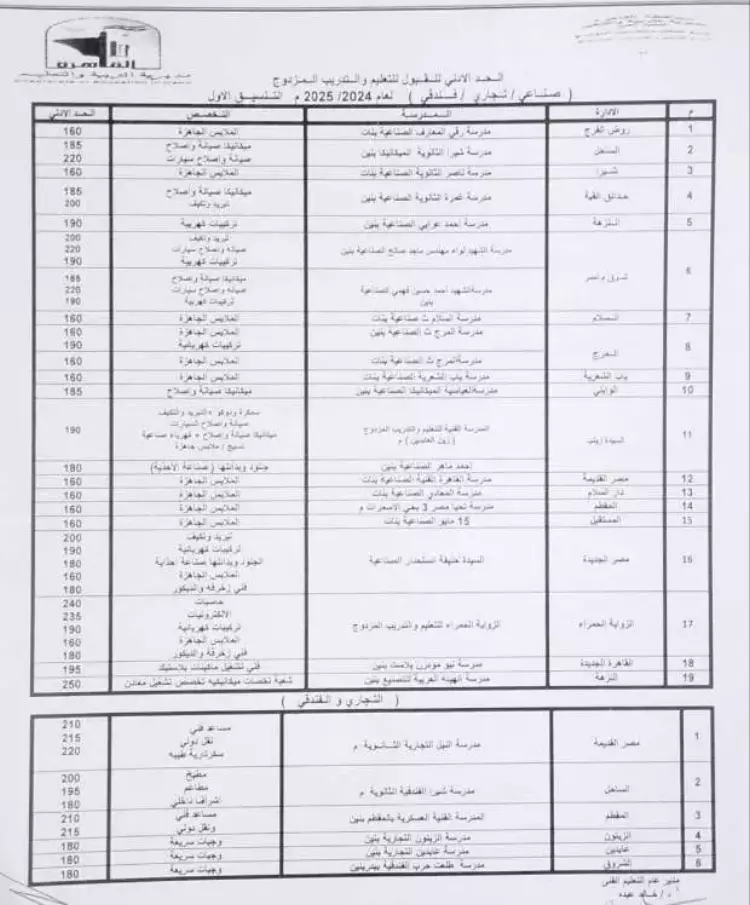 القاهرة
مديرية التربية والتعليم
الحد الادني للقبول للتعليم والتدريب المزدوج
( صناعي / تجاري / فندقي ) لعام 2024/ 2025 م التنسيق الاول
م الادارة المدرسة التخصص الحد الادني
1 روض الفرج مدرسة رقي المعارف الصناعية بنات الملابس الجاهزة 160
2 الساحل مدرسة شبرا الثانوية الميكانيكا بنين ميكانيكا صيانة واصلاح 185
صيانة واصلاح سيارات 220
3 شبرا مدرسة ناصر الثانوية الصناعية بنات الملابس الجاهزة 160
4 حدائق القبة مدرسة غمرة الثانوية الصناعية بنين ميكانيكا صيانة واصلاح 185
تبريد وتكيف 200
5 النزهة مدرسة احمد عرابي الصناعية بنين تركيبات كهربية 190
6 شرق م نصر مدرسة الشهيد لواء مهندس ماجد صالح الصناعية بنين تبريد وتكيف 200
صيانة واصلاح سيارات 220
تركيبات كهربية 190
مدرسة الشهيد احمد حسين فهمي الصناعية بنين ميكانيكا صيانة واصلاح 185
صيانة واصلاح سيارات 220
تركيبات كهربية 190
7 السلام مدرسة السلام ث صناعية بنات الملابس الجاهزة 160
8 المرج مدرسة المرج ث الصناعية بنين الملابس الجاهزة 160
تركيبات كهربائية 190
مدرسة المرج ث الصناعية بنات الملابس الجاهزة 160
9 باب الشعرية مدرسة باب الشعرية الصناعية بنات الملابس الجاهزة 160
10 الوايلي مدرسة العباسية الميكانيكا الصناعية بنين ميكانيكا صيانة واصلاح 185
11 السيدة زينب المدرسة الفنية للتعليم والتدريب المزدوج
( زين العابدين ) م
سمكرة ودوكو + التبريد والتكيف
صيانة واصلاح السيارات
ميكانيكا صيانة واصلاح + كهرباء صناعية
نسيج / ملابس جاهزة
190
احمد ماهر الصناعية بنين جلود وبدائلها ( صناعة الاحذية ) 180
12 مصر القديمة مدرسة القاهرة الفنية الصناعية بنات الملابس الجاهزة 160
13 دار السلام مدرسة المعادي الصناعية بنات الملابس الجاهزة 160
14 المقطم مدرسة تحيا مصر 3 بحي الاسمرات م الملابس الجاهزة 160
15 المستقبل 15 مايو الصناعية بنات الملابس الجاهزة 160
16 مصر الجديدة السيدة حنيفة السلحدار الصناعية تبريد وتكيف 200
تركيبات كهربائية 190
الجلود وبدائلها صناعة احذية 180
الملابس الجاهزة 160
فني زخرفه والديكور 180
17 الزواية الحمراء الزواية الحمراء للتعليم والتدريب المزدوج حاسبات 240
الالكترونيات 235
تركيبات كهربائية 190
الملابس الجاهزة 160
فني زخرفة والديكور 180
18 القاهرة الجديدة مدرسة نيو مودرن بلاست بنين فني تشغيل ماكينات بلاستيك 195
19 النزهة مدرسة الهيئه العربية للتصنيع بنين شعبة تخصصات ميكانيكيه تخصص تشغيل معادن 250
( التجاري و الفندقي )
1 مصر القديمة مدرسة النيل التجارية الثانوية م مساعد فني 210
نقل دولي 215
سكرتارية طبيه 220
2 الساحل مدرسة شبرا الفندقية الثانوية م مطبخ 200
مطاعم 195
اشراف داخلي 180
3 المقطم المدرسة الفنية العسكرية بالمقطم بنين مساعد فني 210
ونقل دولي 215
4 الزيتون مدرسة الزيتون التجارية بنين وجبات سريعة 180
5 عابدين مدرسة عابدين التجارية بنين وجبات سريعة 180
6 الشروق مدرسة طلعت حرب الفندقية وجبات سريعة 180
مدير عام التعليم الفني
د / خالد عبده